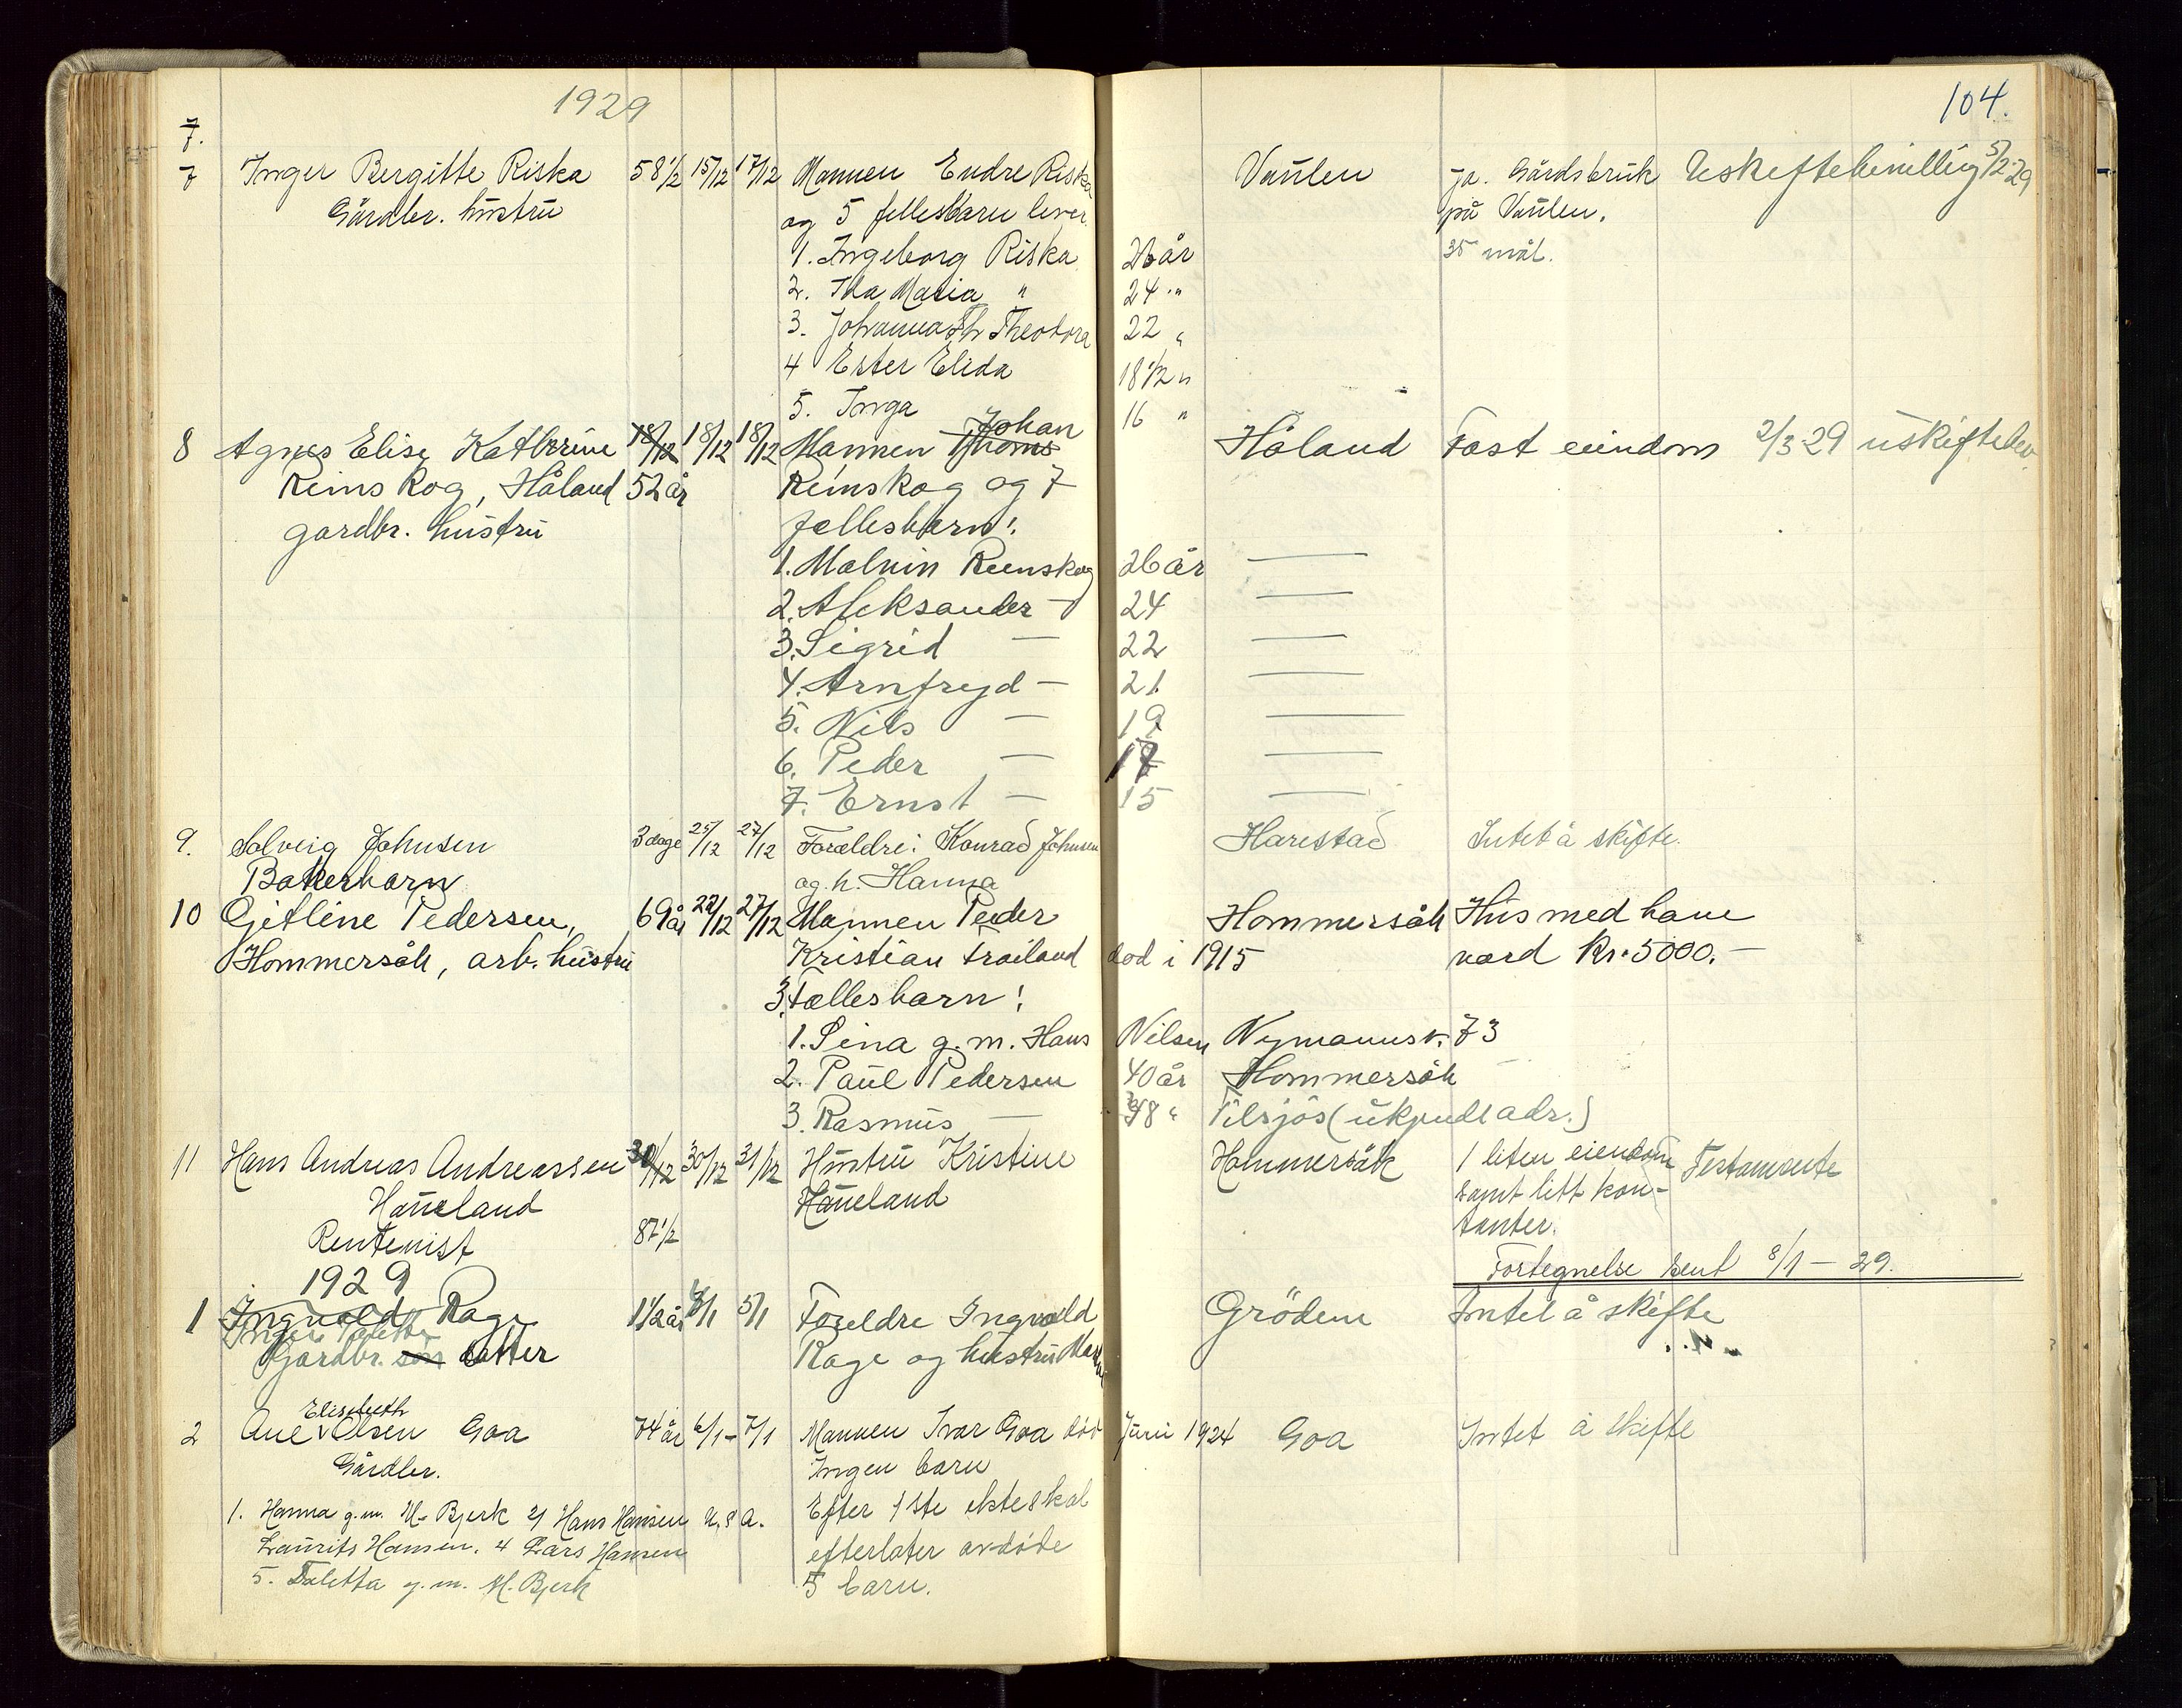 1929
104.
7.
7 Inger Bergitte Riska 58 1/2 15/12 17/12 Mannen Endre Riska Vaulen ja. Gårdsbruk Uskiftebevilling 5/2-29
Gårdbr. hustru og 5 fellesbarn lever på Vaulen.
1. Ingeborg Riska 26 år 35 mål.
2. Ida Maria " 24 "
3. Johanna Th Theodora 22 "
4 Ester Elida 18 1/2 "
5. Inga 16 "
8 Agnes Elise Kathrine 18/12 18/12 18/12 Mannen Thoms Johan Håland Fast eiendom 2/3 29 uskiftebev.
Reinskog, Håland 52 år Reinskog og 7
gardbr. hustru fællesbarn:
1. Malvin Reinskog 26 år —
2. Aleksander — 24 —
3. Sigrid — 22 —
4. Arnfryd — 21 —
5. Nils — 19 —
6. Peder — 17 —
7. Ernst — 15 —
9. Solveig Johnsen 3 dage 25/12 27/12 Forældre: Konrad Johnsen Harestad Intet å skifte.
Bakerbarn og h. Hanna
10 Gjetline Pedersen, 69 år 22/12 27/12 Mannen Peder Hommersåk Hus med have
Hommersåk, arb. hustru Kristian Træiland død i 1915 værd Kr. 5000.-
3 Fællesbarn:
1. Sina g.m. Hans Nilsen Nymannsv. 73
2. Paul Pedersen 40 år Hommersåk
3. Rasmus — 38 " Tilsjøs (ukjendt adr.)
11 Hans Andreas Andreassen 30/12 30/12 31/12 Hustru Kristine Hommersåk 1 liten eiendom Testamente
Haueland Haueland samt litt kon-
Rentenist 87 1/2 tanter.
Fortegnelse sent 8/1 - 29.
1929
1 Ingvald Rage 1 1/2 år 4/1 5/1 Foreldre Ingvald Grödem Intet å skifte
Inger
Gardbr. søn datter Rage og hustru
Elisabeth
2 Ane Olsen Goa 74 år 6/1 - 7/1 Mannen Ivar Goa død Juni 1924 Goa Intet å skifte
Gårdbr. Ingen barn
1. Hanna g.m. M. Bjerk 2) Hans Hansen U.S.A. Efter 1ste ekteskab
Laurits Hansen. 4 Lars Hansen efterlater avdøde
5. Taletta g.m. M. Bjerk 5 barn.